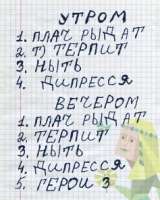 УТРОМ
1. ПЛАЧ РЫДАТ
2. Т) ТЕРПИТ
3. НЫТЬ
4. ДИПРЕССЯ
ВЕЧЕРОМ
1. ПЛАЧ РЫДАТ
2. ТЕРПИТ
3. НЫТЬ
4. ДИПРЕССЯ
5. ГЕРОИ 3